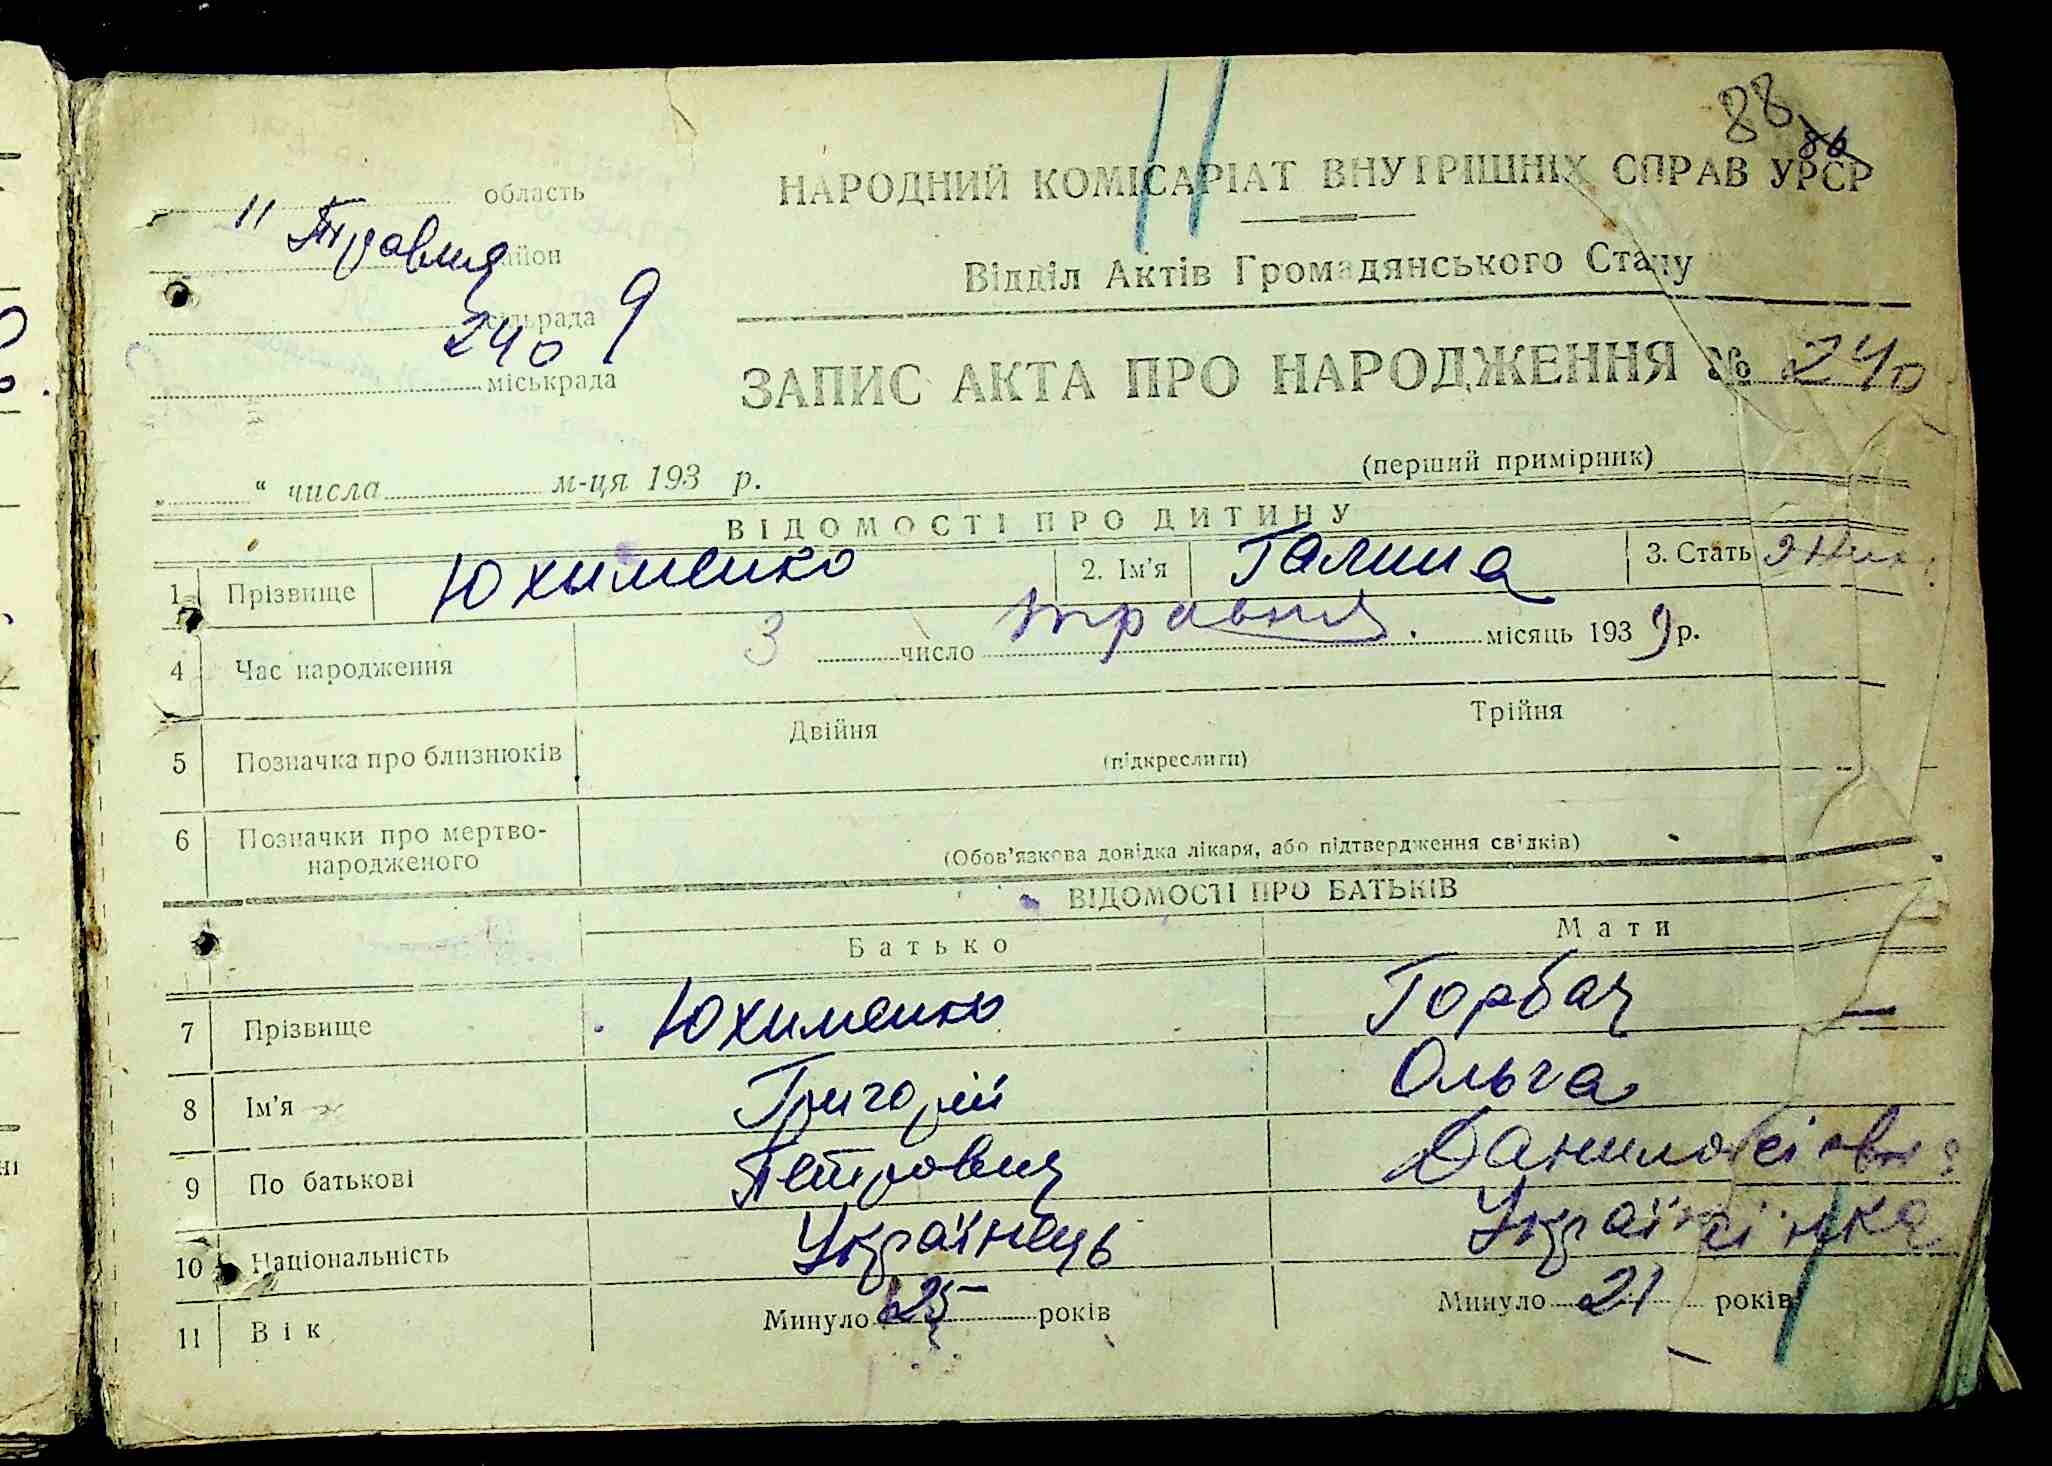 88
86
область
11 Травня
район
сільрада 9
240
міськрада
НАРОДНИЙ КОМІСАРІАТ ВНУТРІШНІХ СПРАВ УРСР
Відділ Актів Громадянського Стану
ЗАПИС АКТА ПРО НАРОДЖЕННЯ № 240
„ “ числа м-ця 193 р.
(перший примірник)
ВІДОМОСТІ ПРО ДИТИНУ
1 Прізвище Юхименко 2. Ім’я Галина 3. Стать Жін.
4 Час народження 3 число травня місяць 1939 р.
5 Позначка про близнюків Двійня Трійня
(підкреслити)
6 Позначки про мертво-
народженого
(Обов’язкова довідка лікаря, або підтвердження свідків)
ВІДОМОСТІ ПРО БАТЬКІВ
Батько Мати
7 Прізвище Юхименко Горбач
8 Ім’я Григорій Ольга
9 По батькові Петрович
10 Національність Українець Українка
11 Вік Минуло 25 років Минуло 21 років